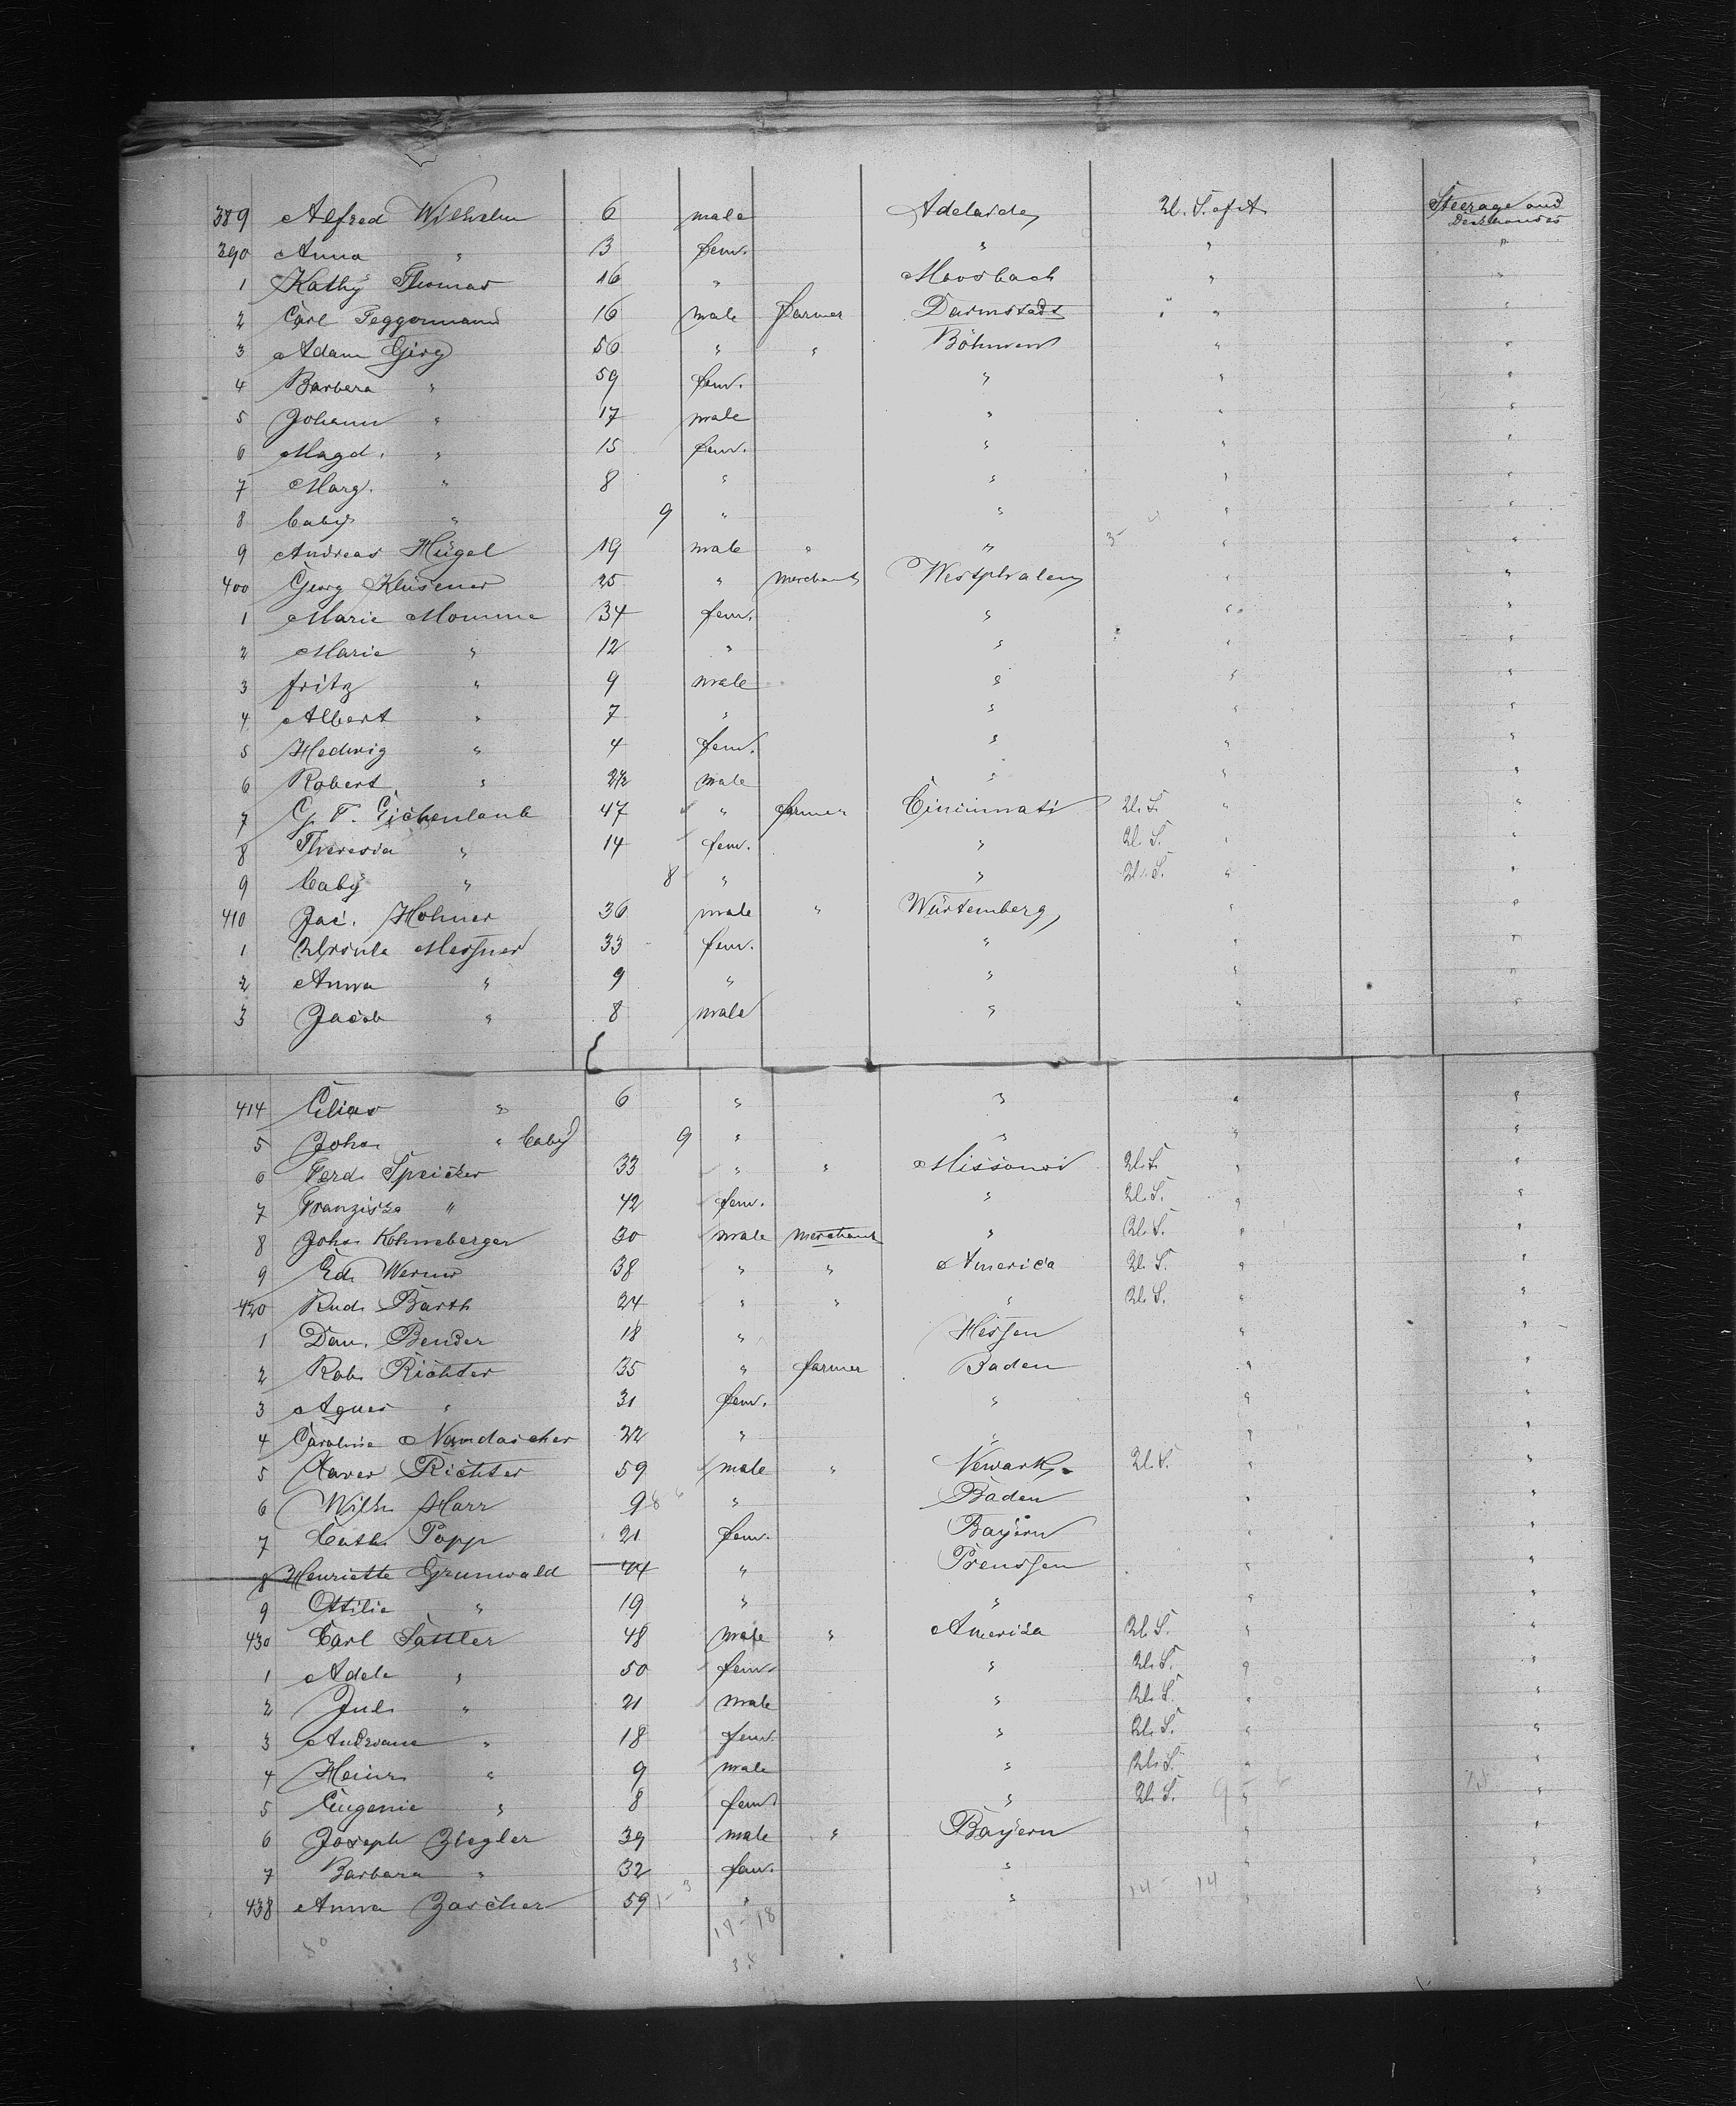 389 Alfred Wilhelm 6 male Adelaide U. S. of A. Steerage and Deckhouses
390 Anna " 3 fem. " " "
1 Kathy Thomas 16 " Moosbach " "
2 Carl Teggermann 16 male farmer Darmstadt " "
3 Adam Girg 56 " " Böhmen " "
4 Barbera " 59 fem. " " "
5 Johann " 17 male " " "
6 Magd. " 15 fem. " " "
7 Marg. " 8 " " " "
8 baby " 9 " " " "
9 Andreas Hügel 19 male " " " "
400 Georg Klüsener 25 " merchant Westphalen " "
1 Marie Momme 34 fem. " " "
2 Marie " 12 " " " "
3 Fritz " 9 male " " "
4 Albert " 7 " " " "
5 Hedwig " 4 fem. " " "
6 Robert " 2½ male " " "
7 G. F. Eichenlaub 47 " farmer Cincinnati U. S. " "
8 Theresia " 14 fem. " U. S. " "
9 baby " 8 " " U. S. " "
410 Jac. Hohner 36 male " Würtemberg " "
1 Ursula Messner 33 fem. " " "
2 Anna " 9 " " " "
3 Jacob " 8 male " " "
414 Elias " 6 " " " "
5 Joh. " baby 9 " " " "
6 Ferd. Speicker 33 " " Missouri U. S. " "
7 Franziska " 42 fem. " U. S. " "
8 Joh. Kohneberger 30 male merchant " U. S. " "
9 Ed. Werner 38 " " America U. S. " "
420 Rud. Barth 24 " " " U. S. " "
1 Dan. Bender 18 " Hessen " "
2 Rob. Richter 35 " farmer Baden " "
3 Agnes " 31 fem. " " "
4 Caroline Nandascher 22 " " " "
5 Xaver Richter 59 male " Newark U. S. " "
6 Wilh. Harr 9 " Baden " "
7 Cath. Popp 21 fem. Bayern " "
8 Henriette Grunwald 44 " Preussen " "
9 Ottilie " 19 " " " "
430 Carl Sattler 48 male " America U. S. " "
1 Adele " 50 fem. " U. S. " "
2 Jul. " 21 male " U. S. " "
3 Andriane " 18 fem. " U. S. " "
4 Heinr. " 9 male " U. S. " "
5 Eugenie " 8 fem. " U. S. " "
6 Joseph Ziegler 39 male " Bayern " "
7 Barbara " 32 fem. " " "
438 Anna Zascher 59 " " 14 - 14 " "
17 - 18